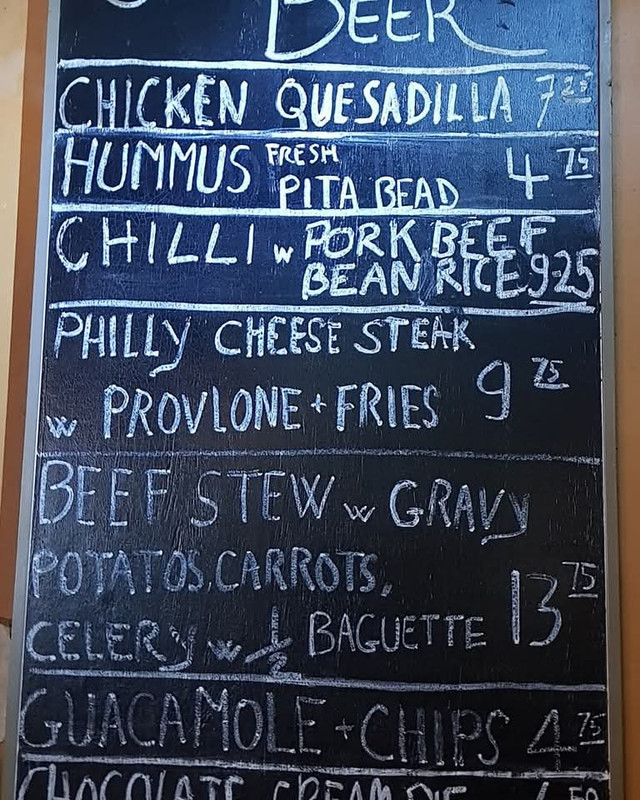 BEER
CHICKEN QUESADILLA 7 25
HUMMUS FRESH
PITA BEAD 4 75
CHILLI w PORK BEEF
BEAN RICE 9.25
PHILLY CHEESE STEAK
w PROVLONE + FRIES 9 75
BEEF STEW w GRAVY
POTATOS, CARROTS,
CELERY w 1/2 BAGUETTE 13 75
GUACAMOLE + CHIPS 4 75
CHOCOLATE CREAM PIE